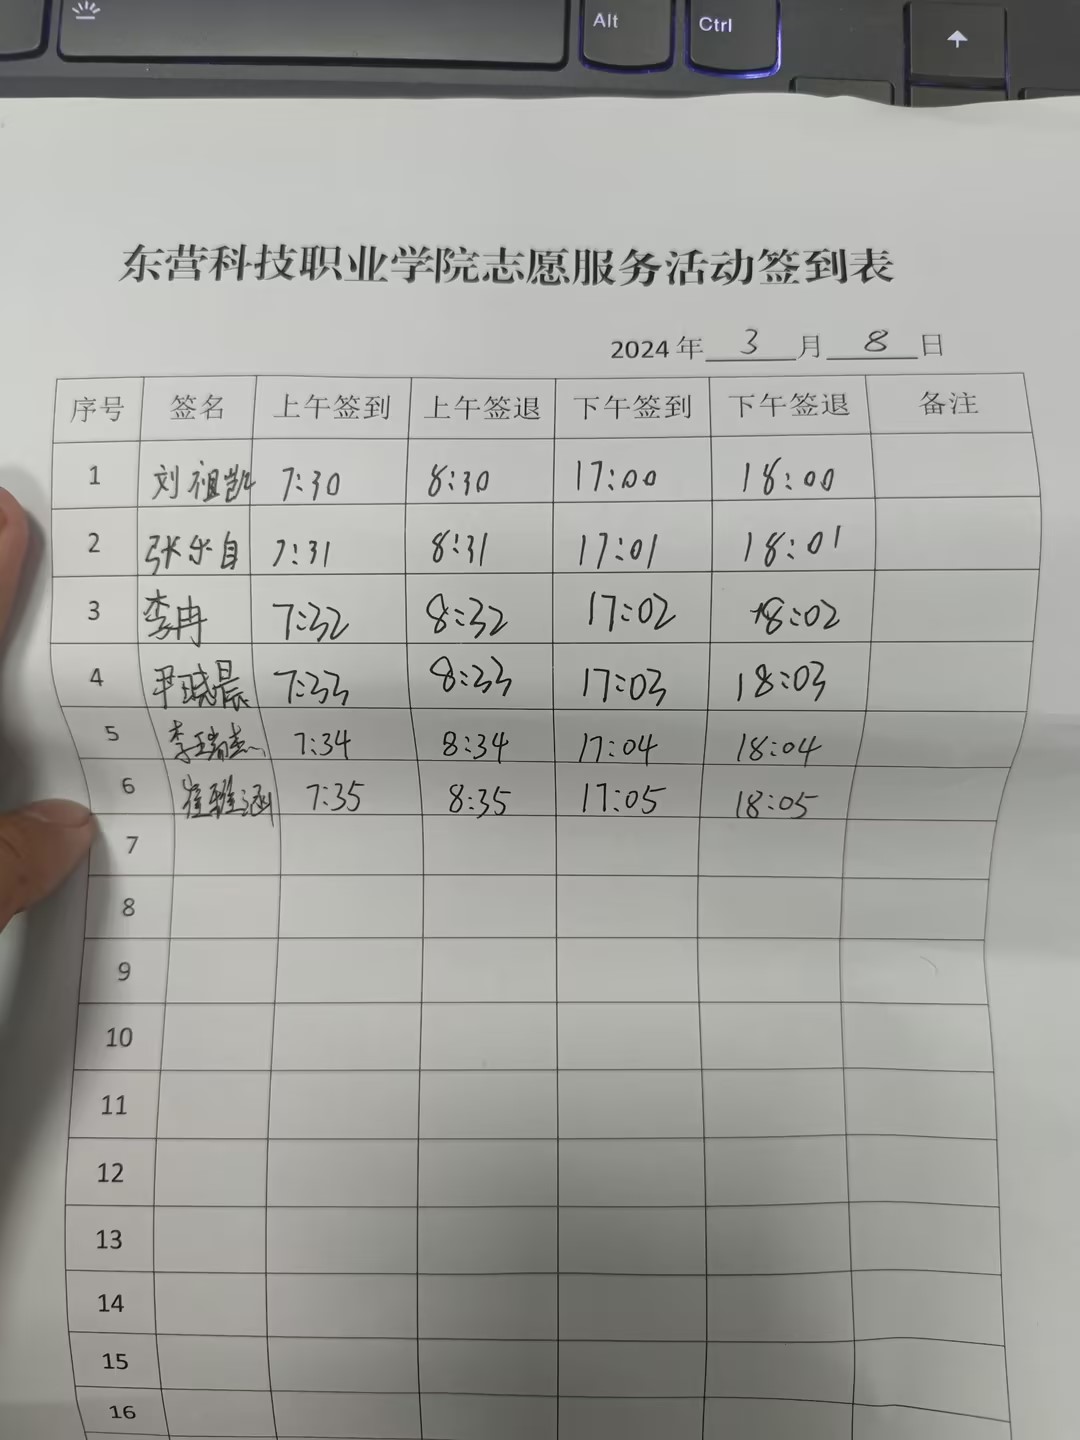 Alt
Ctrl
东营科技职业学院志愿服务活动签到表
2024 年 3 月 8 日
序号 签名 上午签到 上午签退 下午签到 下午签退 备注
1 刘祖凯 7:30 8:30 17:00 18:00
2 张乐自 7:31 8:31 17:01 18:01
3 李冉 7:32 8:32 17:02 18:02
4 尹晓晨 7:33 8:33 17:03 18:03
5 李瑞杰 7:34 8:34 17:04 18:04
6 崔雅涵 7:35 8:35 17:05 18:05
7
8
9
10
11
12
13
14
15
16